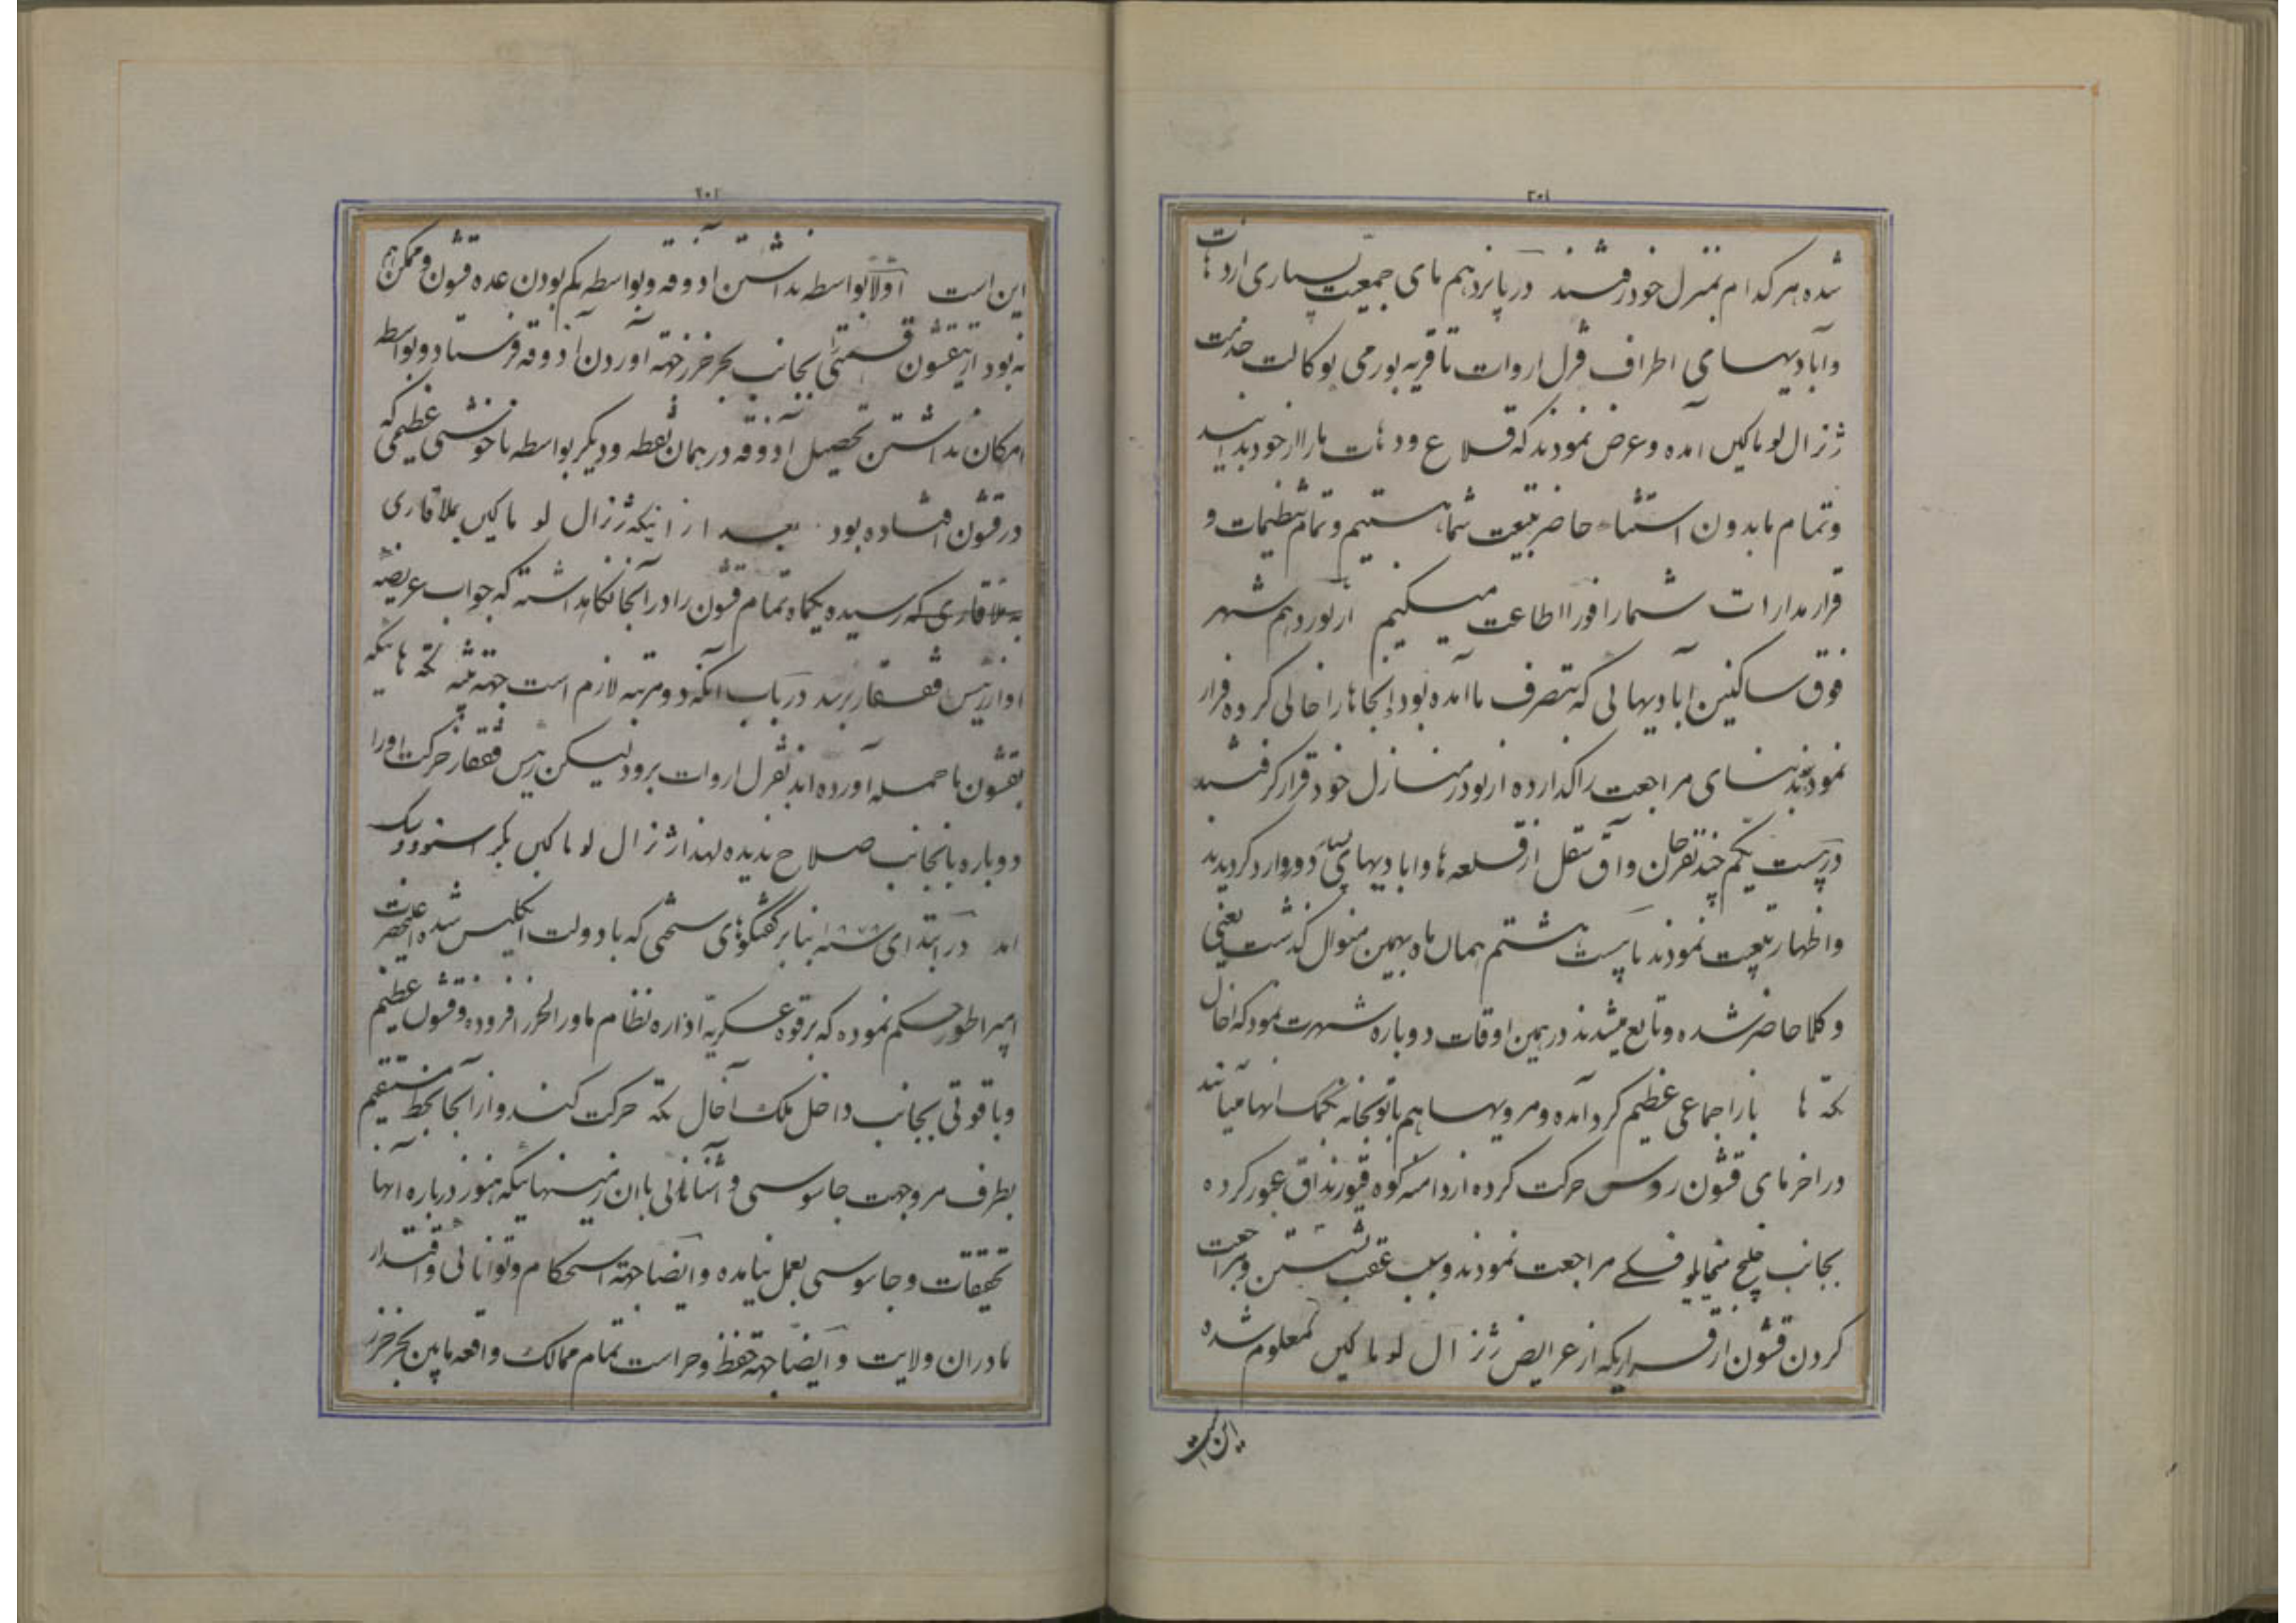 ۲۰۱
شده هر کدام بمنزل خود رفتند در پانزدهم مای جمعیت بسیاری از دهات
و آبادیهای اطراف قزل اروات تا قریه بورمی بوکالت خدمت
ژنرال لوماکین آمده و عرض نمودند که قلاع و دهات ما را از خود بدانید
و تمام ما بدون استثناء حاضر تبعیت شما هستیم و تمام تنظیمات و
قرار مدارات شما را فورا اطاعت میکنیم از نوزدهم شهر
فوق ساکنین آبادیهائی که بتصرف ما آمده بود اینجاها را خالی کرده فرار
نمودند بنای مراجعت را گذارده از نو در منازل خود قرار گرفتند
در بیست یکم چند نفر خان و آق سقل از قلعه ها و ابادیهای بسیار دور وارد گردیدند
و اظهار تبعیت نمودند تا بیست هشتم همان ماه بهمین منوال گذشت یعنی
وکلا حاضر شده و تابع میشدند در همین اوقات دوباره شهرت نمود که اخال
تکه ها باز اجماعی عظیم گرد آمده و مرویها هم با توپخانه بکمک انها میایند
در اخر مای قشون روس حرکت کرده از دامنه کوه عبور کرده
بجانب خلیج میخایلوفسکی مراجعت نمودند و سبب عقب نشستن و مراجعت
کردن قشون از قراریکه از عرایض ژنرال لوماکین معلوم شده
این است
۲۰۲
این است اولا بواسطه نداشتن آذوقه و بواسطه کم بودن عده قشون و ممکن هم
نه بود از قشون قسمتی بجانب بحر خزر جهته اوردن آذوقه فرستاد و بواسطه
امکان نداشتن تحصیل آذوقه در همان نقطه و دیگر بواسطه ناخوشی عظیمی که
در قشون افتاده بود بعد از اینکه ژنرال لوماکین بملاقاری
به ملاقاری که رسیده یکماه تمام قشون را در آنجا نگاهداشته که جواب عریضه
او از رئیس قفقاز برسد در باب آنکه دو مرتبه لازم است جهته تنبیه تکه هائیکه
بقشون ما حمله آورده اند بقزل اروات برود لیکن رئیس قفقاز حرکت او را
دوباره بانجانب صلاح ندیده لهذا ژنرال لوماکین بکراسنوودسک
آمد در ابتدای سنه ۱۸۷۸ بنا بر گفتگوهای سختی که با دولت انگلیس شده اعلیحضرت
امپراطور حکم نموده که بر قوه عسکریه اداره نظام ماوراء الخزر افزوده و قشون عظیم
و با قوتی بجانب داخل ملک آخال تکه حرکت کند و از آنجا بخط مستقیم
بطرف مرو جهت جاسوسی و آشنائی باان زمینهائیکه هنوز درباره آنها
تحقیقات و جاسوسی بعمل نیامده و ایضا جهته استحکام و توانائی و اقتدار
ما در ان ولایت و ایضا جهته حفظ و حراست تمام ممالک واقعه مابین بحر خزر